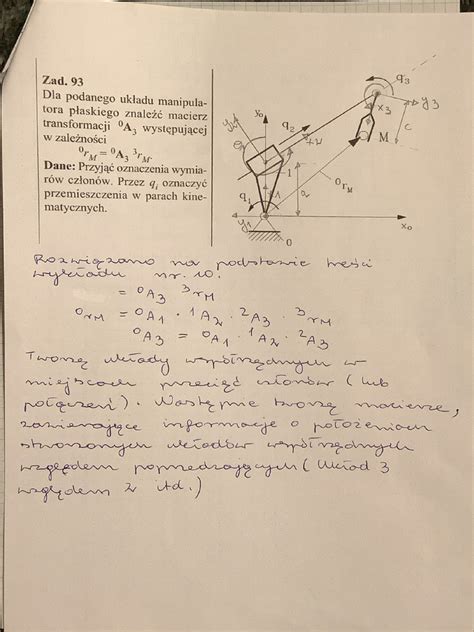 Zad. 93
Dla podanego układu manipula-
tora płaskiego znaleźć macierz
transformacji ⁰A₃ występującej
w zależności
⁰r_M = ⁰A₃ ³r_M
Dane: Przyjąć oznaczenia wymia-
rów członów. Przez qᵢ oznaczyć
przemieszczenia w parach kine-
matycznych.
q₃
y₃
x₃
c
M
x₀
q₂
x₂
1
a
⁰r_M
q₁
y₁
0
x₀
Rozwiązano na podstawie treści
wykładu nr. 10.
= ⁰A₃ ³r_M
⁰r_M = ⁰A₁ · ¹A₂ · ²A₃ · ³r_M
⁰A₃ = ⁰A₁ · ¹A₂ · ²A₃
Tworzę układy współrzędnych w
miejscach przecięć członów (lub
połączeń). Następnie tworzę macierze,
zawierające informacje o położeniach
stworzonych układów współrzędnych
względem poprzedzających (Układ 3
względem 2 itd.)